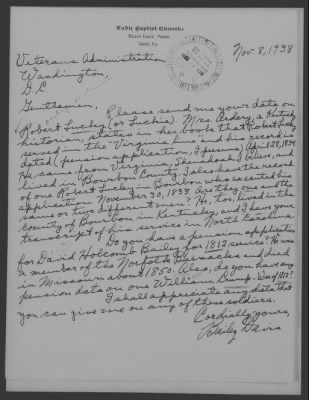 Baptist Church
Pastor
Nov. 8, 1938
Veterans Administration
Washington,
D.C.
Gentlemen,
Please send me your data on
Robert Luckey (or Luckie). Mrs. Ardery, a Kentucky
historian, states in her book that Robert Luckey
served in the Virginia line and his record is
dated (pension application, I presume) April 28, 1834
He came from Virginia, Shenandoah, I believe, and
lived in Bourbon County. I also have the record
of one Robert Luckey in Bourbon who executed his
application November 30, 1832. Are they one and the
same or two different men? He, too, lived in the
county of Bourbon in Kentucky, and I have your
transcript of his service in North Carolina.
Do you have a pension application
for David Holcomb Bailey for 1812 service? He was
a member of the Norfolk Barracks and died
in Missouri about 1850. Also, do you have any
pension data on one William Crump - War of 1812?
I shall appreciate any data that
you can give me on any of these soldiers.
Cordially yours,
Davis